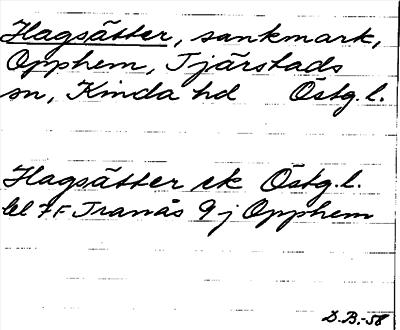 Hagsätter, sankmark,
Opphem, Tjärstads
sn, Kinda hd Östg. l.
Hagsätter ek Östg. l.
bl 7 F Tranås 9 j Opphem
D.B.-58